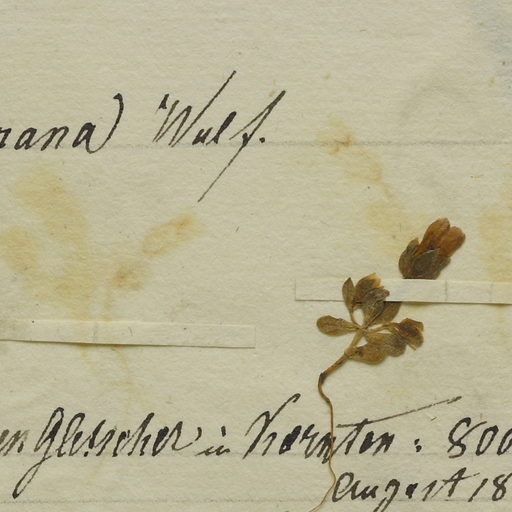 nana) Wulf.
en Gletscher in Kärnten : 800
August 18